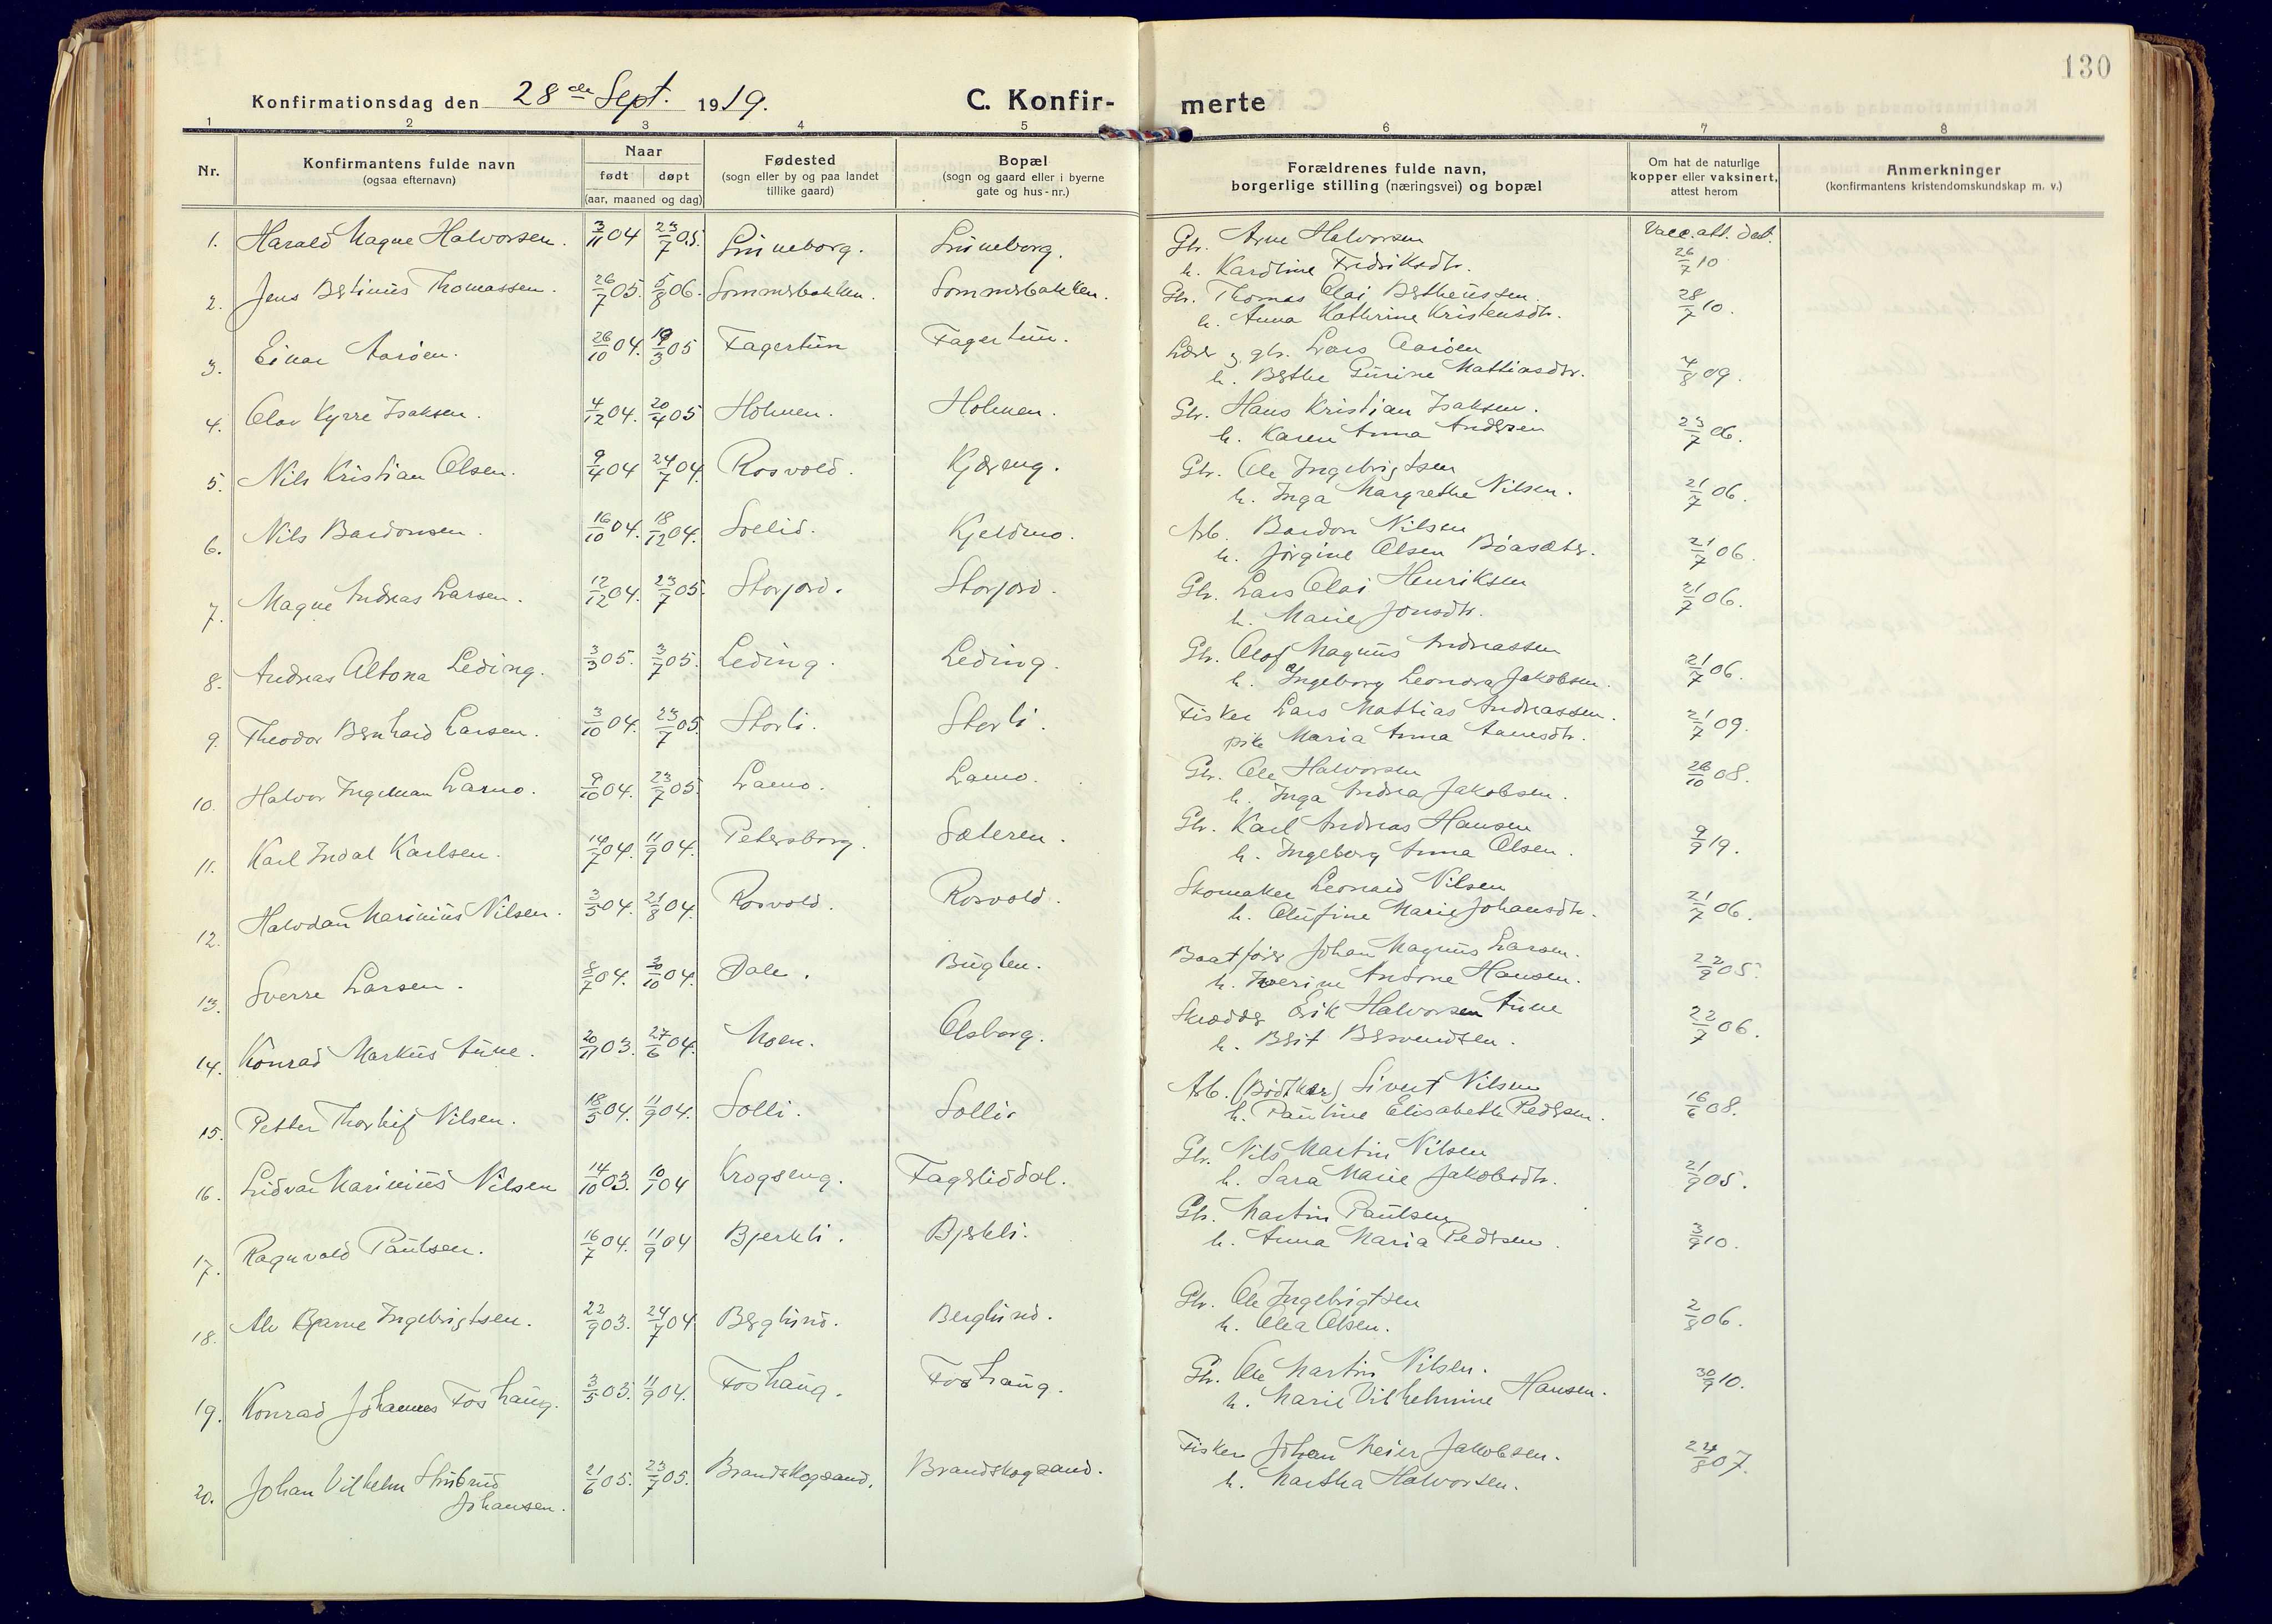 130
Konfirmationsdag den 28de Sept. 1919.
C. Konfir- merte
1 2 3 4 5 6 7 8
Nr.
Konfirmantens fulde navn
(ogsaa efternavn)
Naar
født døpt
(aar, maaned og dag)
Fødested
(sogn eller by og paa landet
tillike gaard)
Bopæl
(sogn og gaard eller i byerne
gate og hus-nr.)
Forældrenes fulde navn,
borgerlige stilling (næringsvei) og bopæl
Om hat de naturlige
kopper eller vaksinert,
attest herom
Anmerkninger
(konfirmantens kristendomskundskap m. v.)
Vacc. att. dat.
1. Harald Magne Halvorsen. 3/11 04 23/7 05. Luneborg. Luneborg. Gbr. Arne Halvorsen 26/7 10
h. Karoline Fredriksdtr.
2. Jens Bertinus Thomassen. 26/7 05. 5/8 06. Sommerbakken. Sommerbakken. Gbr. Thomas Olai Bertheussen. 28/7 10.
h. Anna Kathrine Kristensdtr.
3. Einar Aarøen. 26/10 04. 19/3 05 Fagertun Fagertun. Lærer og gbr. Lars Aarøen 4/8 09.
h. Berthe Gurine Mattiasdtr.
4. Olav Kyrre Isaksen. 4/12 04. 20/4 05 Holmen. Holmen. Gbr. Hans Kristian Isaksen. 23/7 06.
h. Karen Anna Andersen
5. Nils Kristian Olsen. 9/4 04 24/7 04. Rosvold. Kjæreng. Gbr. Ole Ingebrigtsen 21/7 06.
h. Inga Margrethe Nilsen.
6. Nils Bardonsen. 16/10 04. 18/12 04. Sollid. Kjeldmo. Arb. Bardon Nilsen 21/7 06.
h. Jørgine Olsen Bøasæter.
7. Magne Andreas Larsen. 12/12 04. 23/7 05. Storjord. Storjord. Gbr. Lars Olai Henriksen 21/7 06.
h. Marie Jonsdtr.
8. Andreas Altona Leding. 3/3 05. 3/7 05. Leding. Leding. Gbr. Olof Magnus Andreassen 21/7 06.
h. Ingeborg Leonora Jakobsen.
9. Theodor Bernhard Larsen. 3/10 04. 23/7 05 Storli. Storli. Fisker Lars Mattias Andreassen. 21/7 09.
pike Maria Anna Aanesdtr.
10. Halvor Ingeman Larmo. 9/10 04. 23/7 05. Larmo. Larmo. Gbr. Ole Halvorsen 26/10 08.
h. Inga Andrea Jakobsen.
11. Karl Indal Karlsen. 14/7 04. 11/9 04. Petersborg. Sæteren. Gbr. Karl Andreas Hansen 9/9 19.
h. Ingeborg Anna Olsen.
12. Halvdan Marinius Nilsen. 3/5 04. 21/8 04. Rosvold. Rosvold. Skomaker Leonard Nilsen 21/7 06.
h. Olufine Marie Johansdtr.
13. Sverre Larsen. 8/7 04. 30/10 04. Dale. Buglen. Baatfører Johan Magnus Larsen. 22/9 05.
h. Iverine Antone Hansen.
14. Konrad Markus Aune. 20/11 03. 27/6 04. Moen. Olsborg. Skrædder Erik Halvorsen Aune 22/7 06.
h. Berit Bersvendsen.
15. Petter Thorleif Nilsen. 18/5 04. 11/9 04. Solli. Solli. Arb. (Bødtker) Sivert Nilsen 16/6 08.
h. Pauline Elisabeth Pedersen.
16. Ludvar Marinius Nilsen 14/10 03. 10/1 04 Krogseng. Fagerliddal. Gbr. Nils Martin Nilsen 21/9 05.
h. Sara Marie Jakobsdtr.
17. Ragnvald Paulsen. 16/7 04. 11/9 04 Bjerkli. Bjerkli. Gbr. Martin Paulsen 3/9 10.
h. Anna Maria Pedersen.
18. Alv Bjarne Ingebrigtsen. 22/9 03. 24/7 04 Berglund. Berglund. Gbr. Ole Ingebrigtsen 2/8 06.
h. Olea Olsen.
19. Konrad Johannes Foshaug. 3/5 03. 11/9 04. Foshaug. Foshaug. Gbr. Ole Martin Nilsen. 30/9 10.
h. Marie Vilhelmine Hansen.
20. Johan Vilhelm 21/6 05. 23/7 05. Brandskogsand. Brandskogsand. Fisker Johan Meier Jakobsen. 24/8 07.
Johansen. h. Martha Halvorsen.